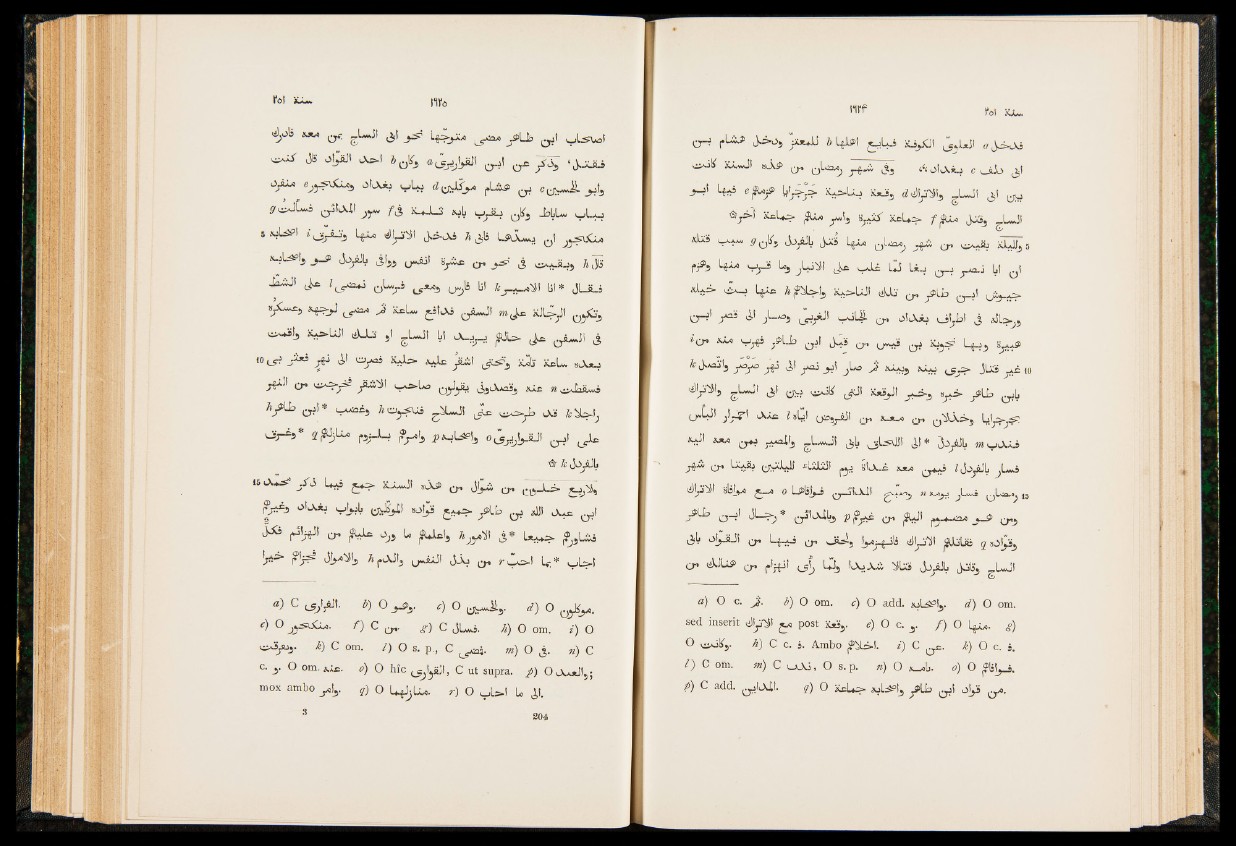 سنة ٢٥١ ١٦٢۴
فدخل a العلوى الكوفة فبايع اهلها b للمعتز ودخل هشام بن
ابى دلف c بغداد ۞ وفى شهر رمضان من هذه السنة كانت
بين ابى الساج والاتراك d وقعة بناحية جرجرايا هزمهم e فيها ابو
الساج وقتل منهم f جماعة كثيرة واسر منهم جماعة أخر ۞
5 ولليلة بقيت من شهر رمضان منها قتل بالفردل وكان g سبب قتله
ان ابا نصر بن بغا لمّا غلب على الانبار وما قرب منها وهزم
جيوش ابن طاهر من تلك الناحية واجلاهم h عنها بثّ خيله
ورجاله فى اطراف بغداد من الجانب الغربىّ وسار الى قصر ابن
هبيرة وبها نجوبة بن قيس من قبل ابن طاهر فهرب منه من i
10 غير قتال جرى بينه وبينه ثم سار ابو نصر الى نهر صرصر واتّصل k
بابن طاهر خبره وخبر الوقعة التى كانت بين ابى الساج والاتراك
بجرجرايا وخذلان من معه من الفروض ايّاه l عند احمرار البأس
فندب m بالفردل الى * اللحاق بابى الساج والمصير بمن معه اليه
فسار بالفردل l فيمن معه غداة يوم الثلثاء لليلتين بقيتا من شهر
15 رمضان فسار يومه n وصبّح المدائن فوافاها o مع موافاة الاتراك
ومن هو مضموم اليهم من غيرهم p وبالمدائن * رجال ابن طاهر
وقوّاده q فقاتلهم الاتراك فانهزموا ولحق من فيها من القواد بابى
الساج وقاتل بالفردل قتالا شديدا ولمّا رأى انهزام من هنالك من
a) O c. ثم. b) O om. c) O add. واصحابه. d) O om.
sed inserit مع الاتراك post وقعة. e) O c. و. f) O منها. g)
O وكانت. h) C c. ف. Ambo اخلاهم. i) C عن. k) O c. ف.
l) C om. m) C فذب, O s. p. n) O نامه. o) O فوافاهم.
p) C add. المدائن. q) O من قواد ابن طاهر واصحابه جماعة.
١٦٢٥ سنة ٢٥١
اصحاب ابن طاهر مضى متوجّها نحو ابى الساج بمن معه فادرك
فقتل، وذكر عن ابن القواريرى a وكان b احد القوّاد قال كنت
وابو الحسين c بن هشام موكّلين d بباب بغداد ومنكجور e منفرد
بباب ساباط وكان بقرب بابه ثلمة فى f سور المدائن فسألت g
5 منكجور ان يسدّها فابى h فدخل الاتراك منها وتفرّق i اصحابه
قال h وبقيت فى نحو من عشرة انفس ووافى بالفردل هو واصحابه
فقال * انا الامير k انا فارس ومعى فرسان نمضى l على الشطّ
وتكون الرجّالة على m السفن فدافع ساعة ثم مضى لوجهه وعسكره
فى السفن على حالهم يريد ابا الساج او تلك الناحية واقمت
10 بعده ساعة تامّة وتحتى اشقر عليه حلية فصرت الى نهر فعثر بى
فسقطت n عنه وقصدونى يقولون صاحب الاشقر فخرجت من النهر
راجلا k قد طرحت عنّى السلاح فنجوت h وغضب * ابن طاهر h
على ابن القواريرى o واصحابه p وامرهم بلزوم منازلهم q * وغرق
بالفردل k ۞
15 ولاربع خلون من شوّال من هذه السنة جمع فيما ذكر محمّد
ابن عبد الله بن طاهر جميع قوّاده الموكّلين بابواب بغداد وغيرهم
فشاورهم جميعا * فى الامور h واعلمهم ما ورد عليهم من الهزائم فكلّ
اجاب * بما احبّ r من بذل النفس والدم h والاموال فجزاهم خيرا
a) C الفرازى. b) O وهو. c) O والحسين. d) O موكلون.
e) O ومنكجور. f) C من. g) C فسال. h) O om. i) O
وتعرقت. k) C om. l) O s. p., C فمضى. m) O فى. n) C
c. و. O om. عنه. o) O hic القوارى, C ut supra. p) O والعدد;
mox ambo وامر. q) O منازلهما. r) O الى ما اجاب.
3 204